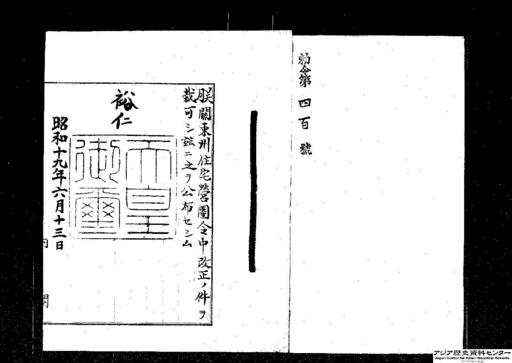 勅令第四百號
朕關東州住宅營團令中改正ノ件ヲ
裁可シ茲ニ之ヲ公布セシム
裕仁
天皇御璽
昭和十九年六月十三日
内閣
アジア歴史資料センター
Japan Center for Asian Historical Records